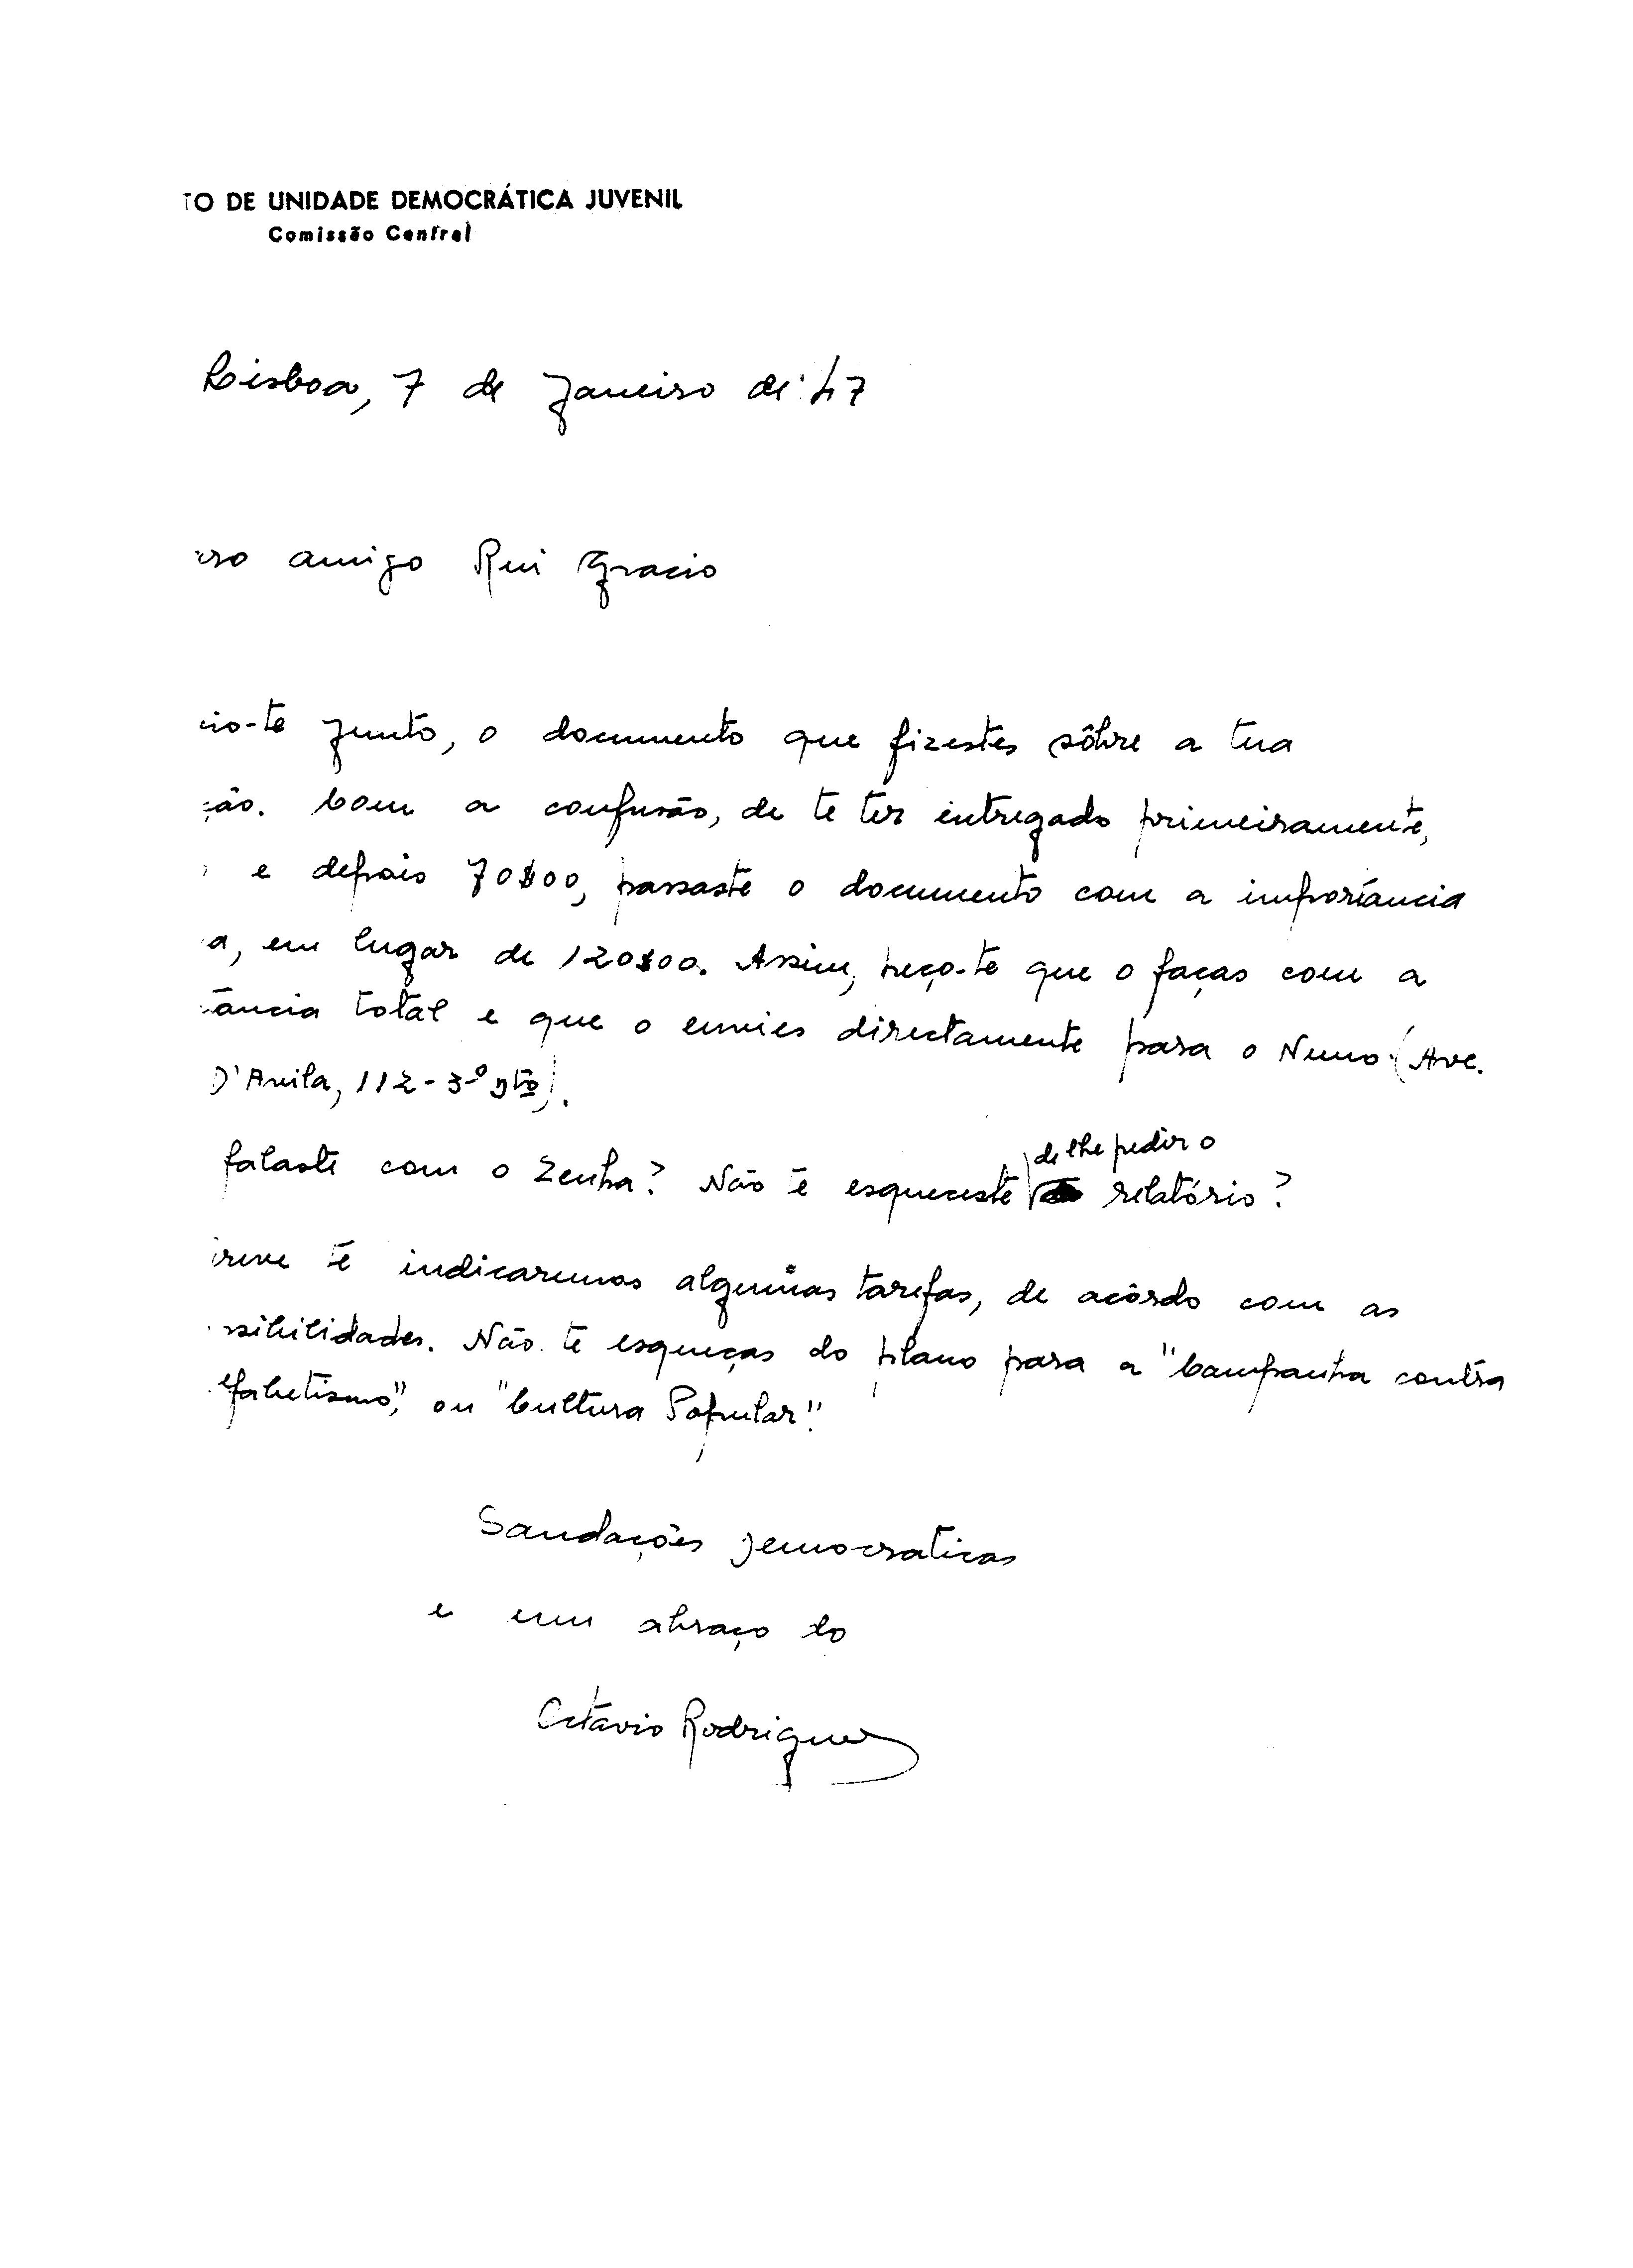 TO DE UNIDADE DEMOCRÁTICA JUVENIL
Comissão Central
Lisboa, 7 de Janeiro de 47
aro amigo Rui Gracio
io-te junto, o documento que fizestes sôbre a tua
ção. Com a confusão, de te ter entregado primeiramente,
e depois 70$00, passaste o documento com a importância
a, em lugar de 120$00. Assim, peço-te que o faças com a
ância total e que o envies directamente para o Nuno (Ave.
D'Avila, 112-3º dtº).
falaste com o Zenha? Não te esqueceste de lhe pedir o relatório?
reve te indicaremos algumas tarefas, de acôrdo com as
ssibilidades. Não te esqueças do plano para a "Campanha contra
lfabetismo", ou "Cultura Popular".
Saudações Democraticas
e um abraço do
Octávio Rodrigues